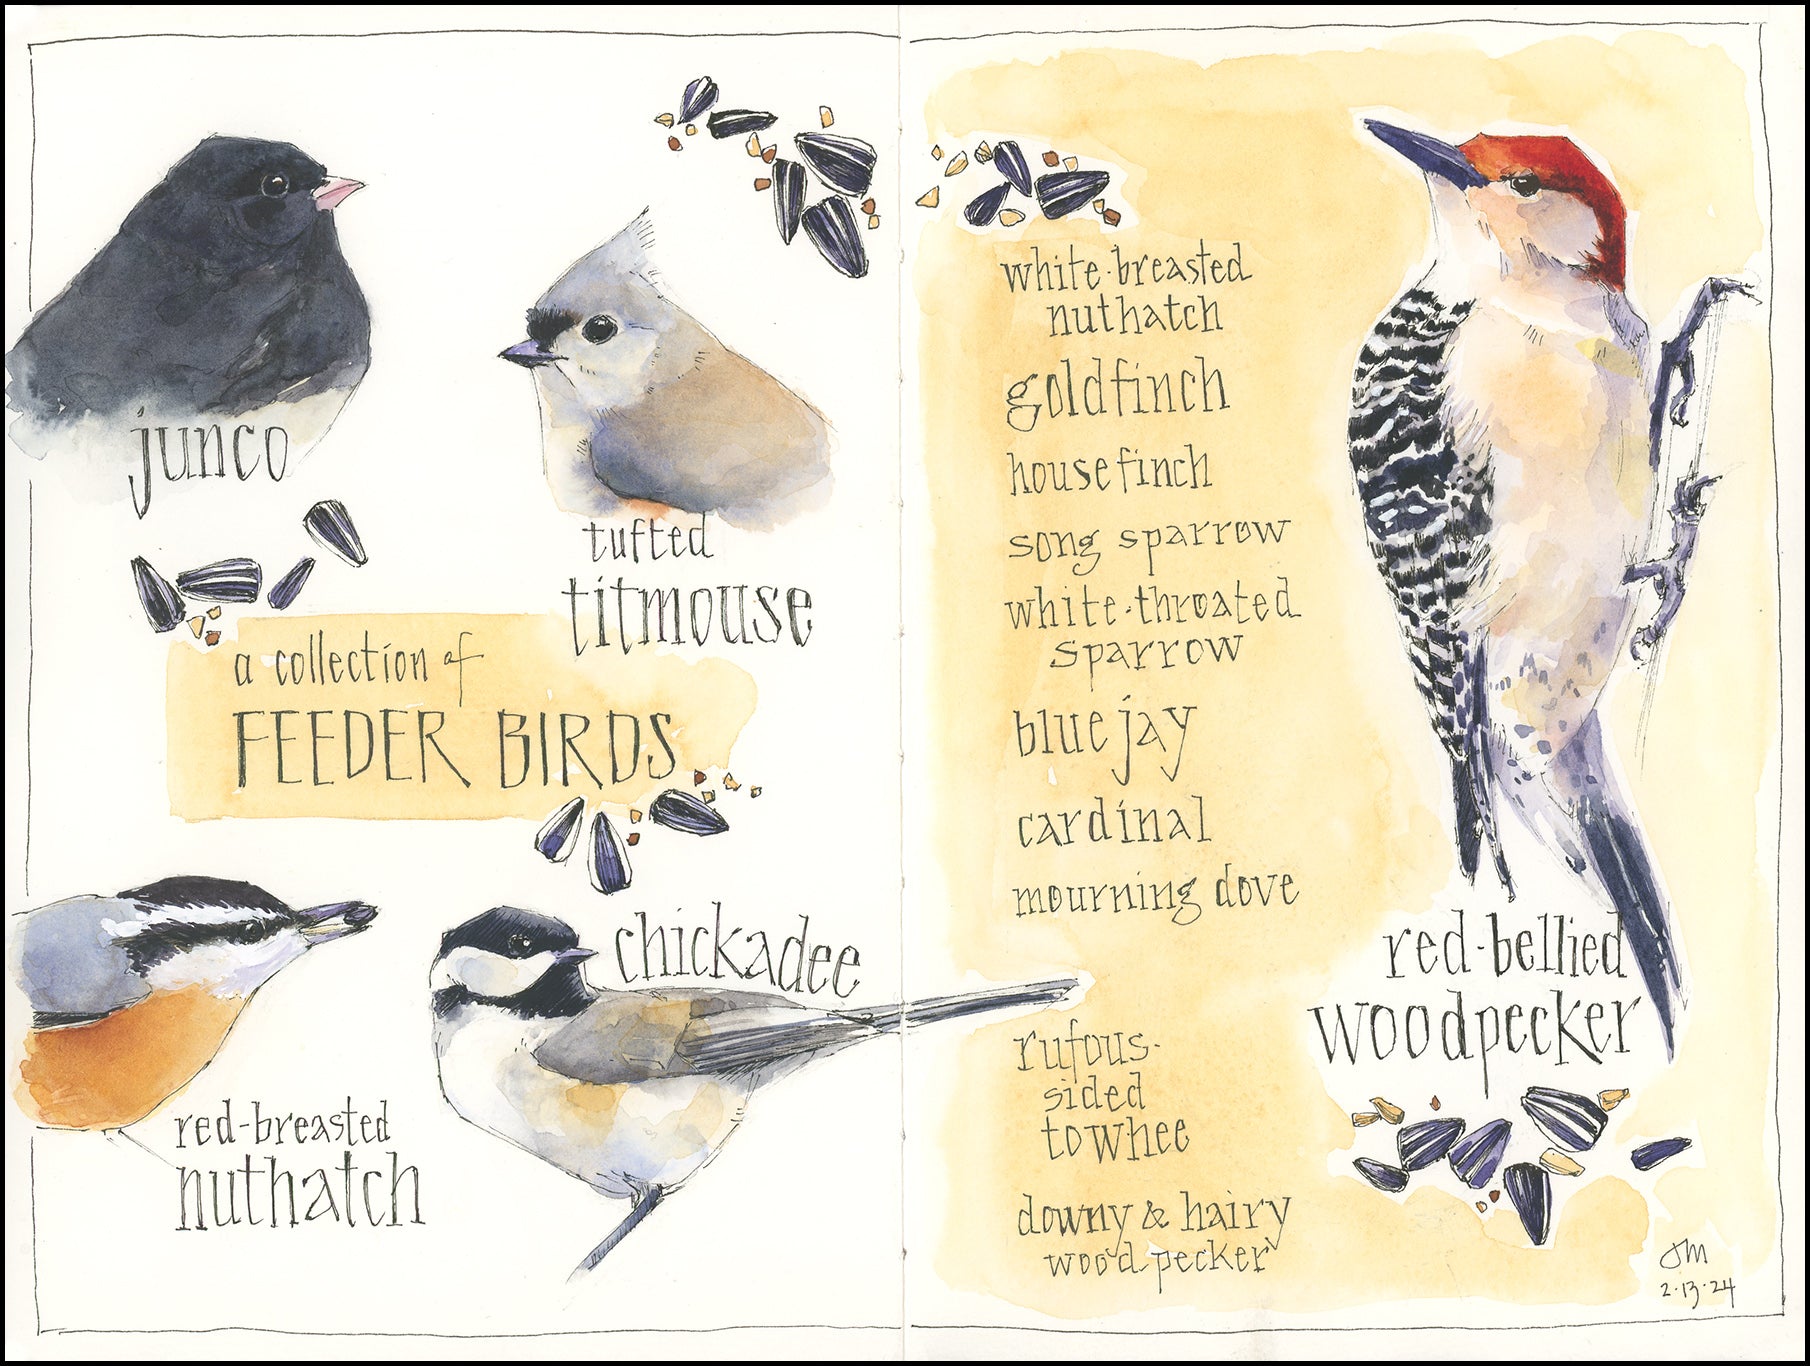 junco
tufted
titmouse
a collection of
FEEDER BIRDS
red-breasted
nuthatch
chickadee
white-breasted
nuthatch
goldfinch
house finch
song sparrow
white-throated
sparrow
blue jay
cardinal
mourning dove
rufous-
sided
towhee
downy & hairy
woodpecker
red-bellied
woodpecker
JM
2.13.24